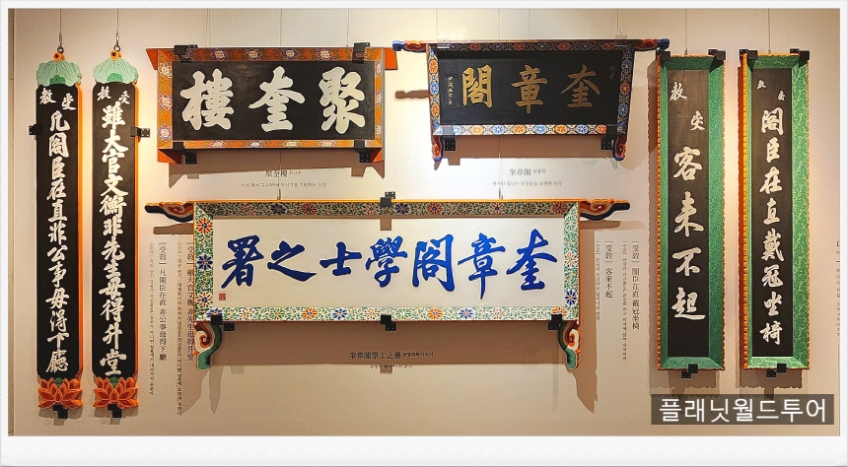 受教
凡閣臣在直非公事毋得下廳
受教
雖大官文衡非先生毋得升堂
聚奎樓
聚奎樓
奎章閣
奎章閣
奎章閣學士之署
奎章閣學士之署
受教
客來不起
受教
閣臣在直戴冠坐椅
[受敎] 閣臣在直戴冠坐椅
[受敎] 客來不起
[受敎] 雖大官文衡非先生毋得升堂
[受敎] 凡閣臣在直非公事毋得下廳
플래닛월드투어